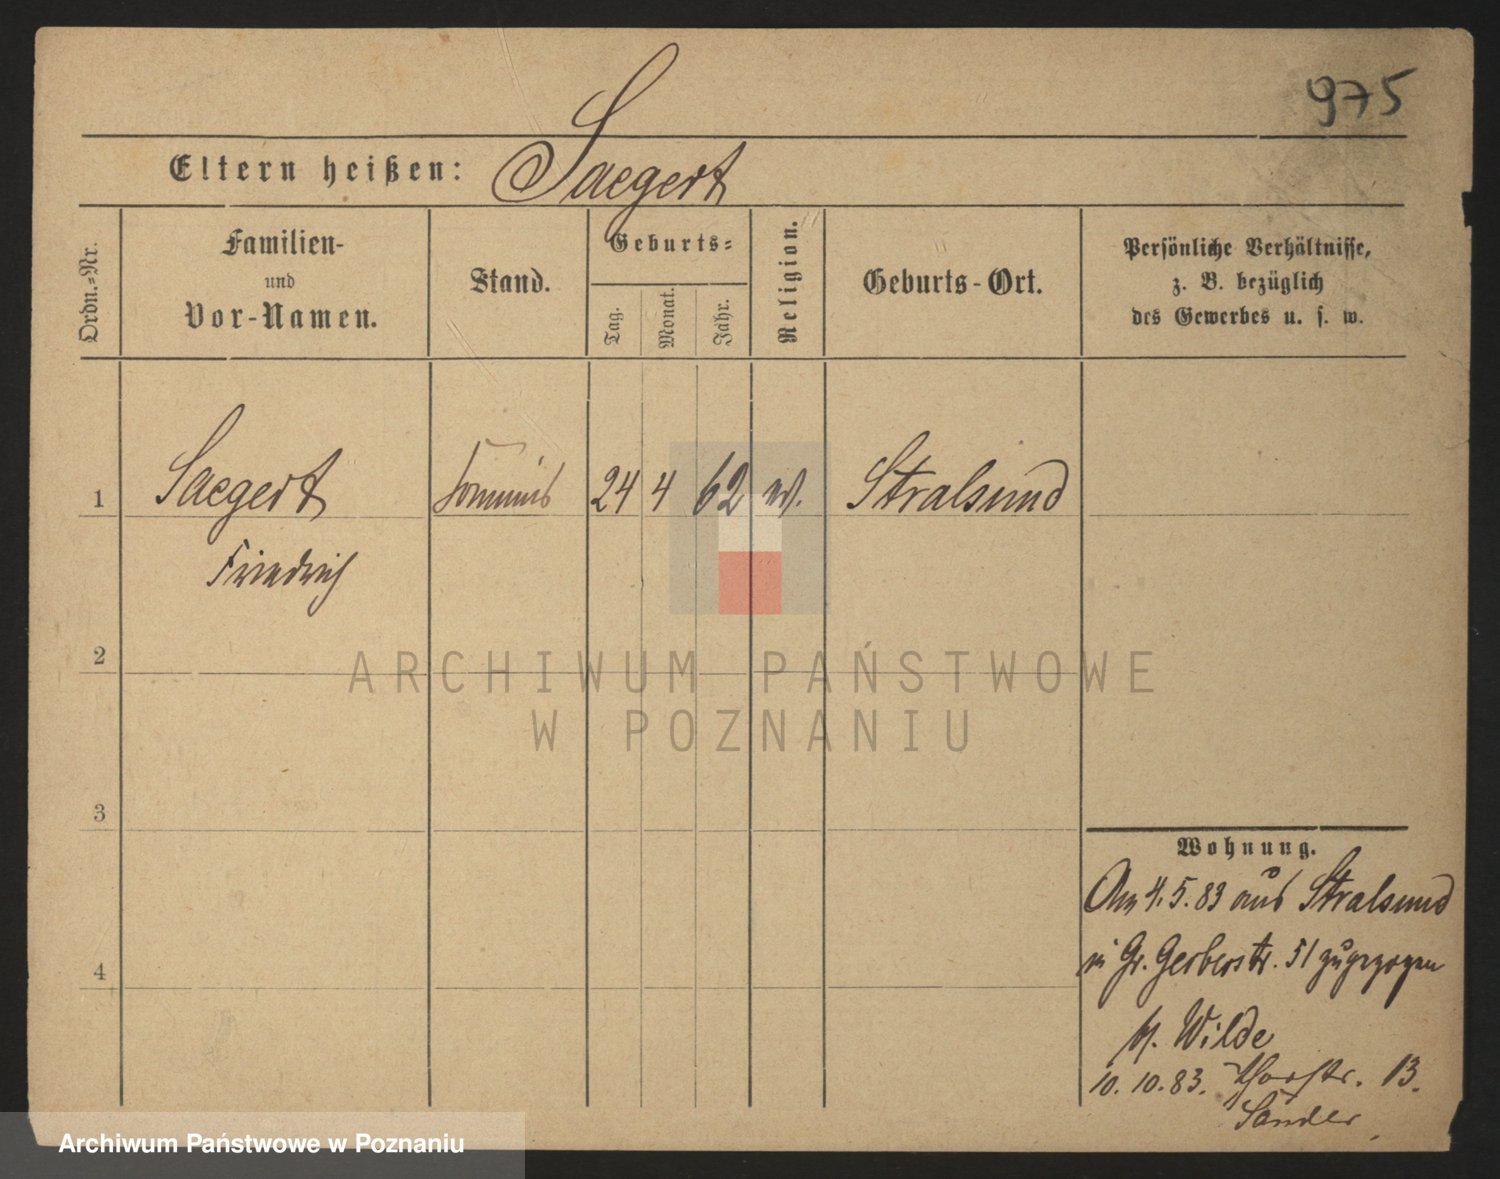 975
Eltern heißen: Saegert
Ordn.-Nr.
Familien-
und
Vor-Namen.
Stand.
Geburts-
Tag.
Monat.
Jahr.
Religion.
Geburts-Ort.
Persönliche Verhältnisse,
z. B. bezüglich
des Gewerbes u. s. w.
1 Saegert 24 4 62 ev. Stralsund
Friedrich
2
ARCHIWUM PAŃSTWOWE
W POZNANIU
3
Wohnung.
Am 4.5.83 aus Stralsund
in Gr. Gerberstr. 51 zugezogen
4
b/. Wilde
10.10.83. Thorstr. 13.
Sander
Archiwum Państwowe w Poznaniu